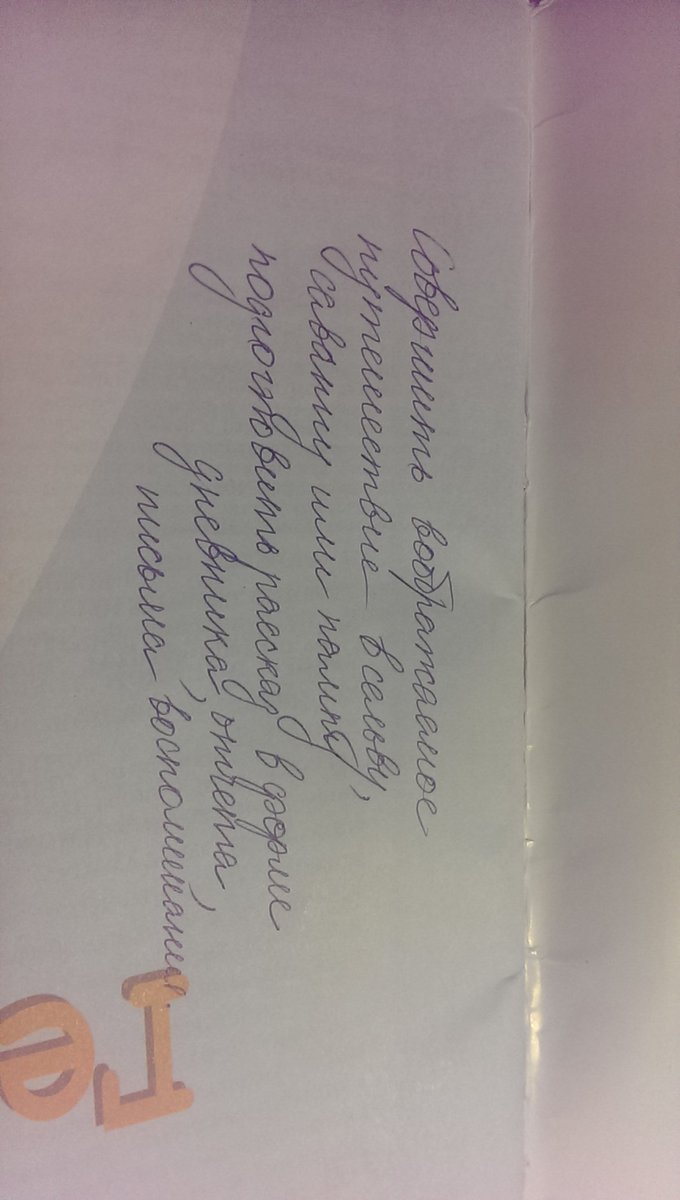 Совершить воображаемое
путешествие в сельву,
саванну или пампу
подготовить рассказ в форме
дневника, отчета,
письма, воспоминания